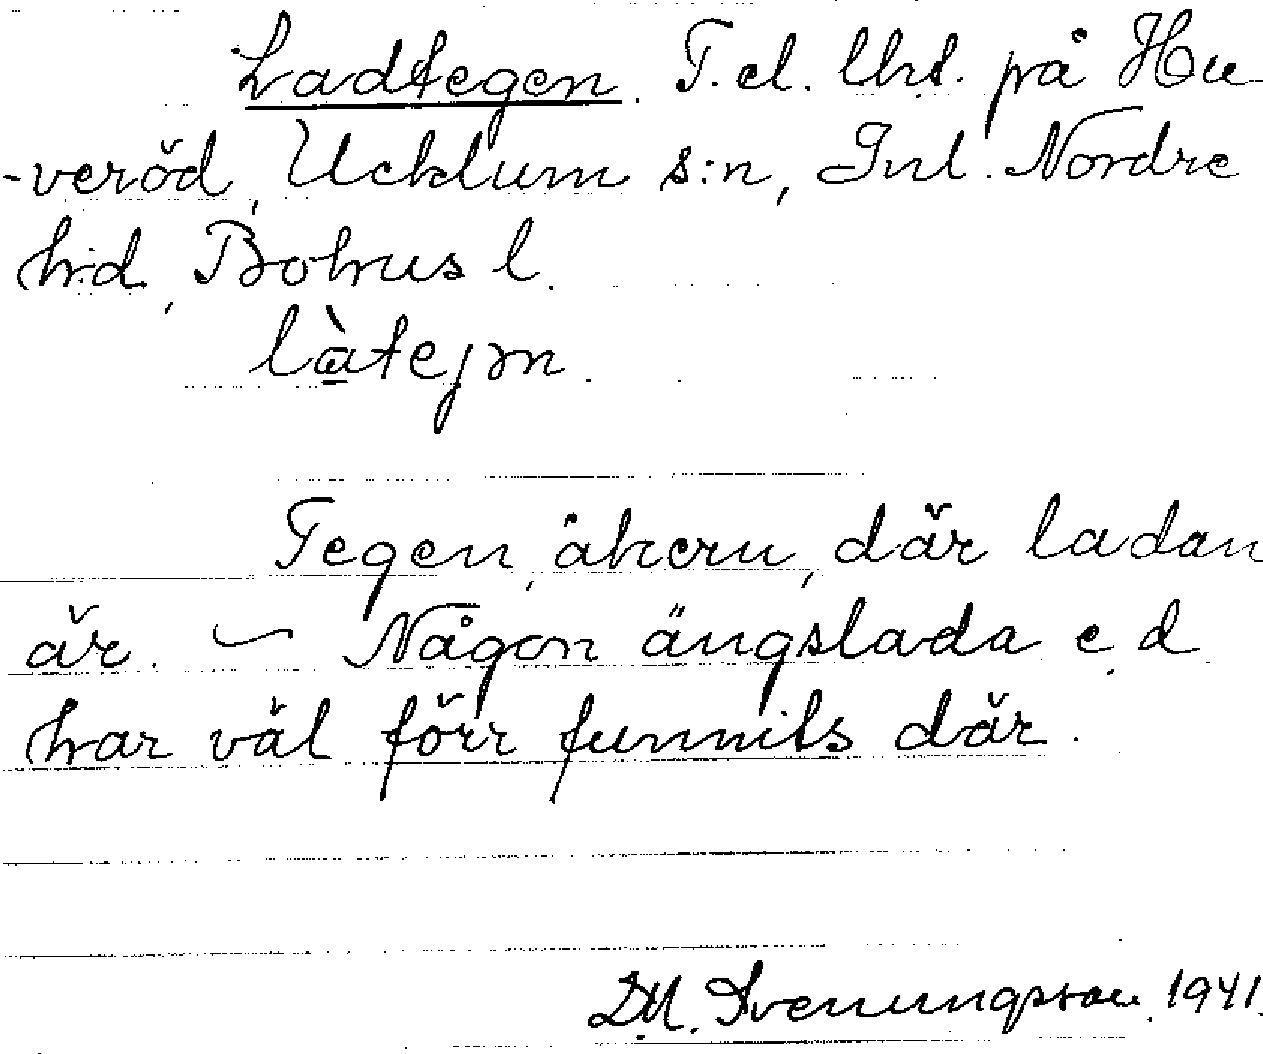 Ladtegen. T.el. lht. på Hu
-veröd, Ucklum s:n, Inl. Nordre
h:d, Bohus l.
làtejən.
Tegen, åkern, där ladan
är. – Någon ängslada e.d
har väl förr funnits där.
D.M. Svenungsson. 1941.